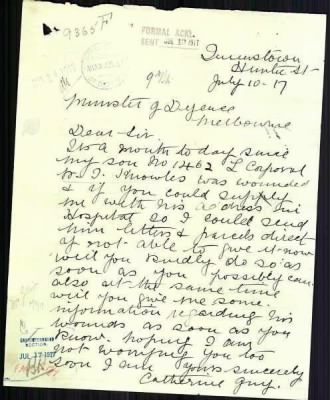 9365
FORMAL ACK.
SENT JUL 17 1917
Queenstown
Hunter St
July 10-17
Minister of Defence
Melbourne
Dear Sir
Its a month to day since
my son No 1462 L Corporal
W. J. Knowles was wounded
& if you could supply
me with his address in
Hospital so I could send
him letters & parcels direct
if not able to give it now
will you kindly do so as
soon as you possibly can
also at the same time
will you give me some
information regarding his
wounds as soon as you
know. hoping I am
not worrying you too
soon I am yours sincerely
Catherine Guy.
SECTION
JUL 17 1917